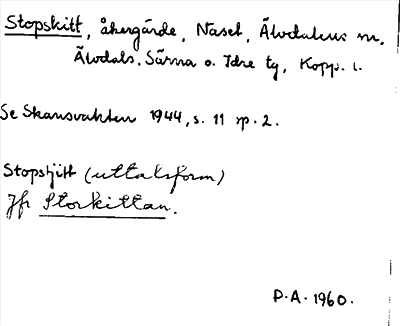 Stopskitt, åkergärde, Naset, Älvdalens sn.
Älvdals, Särna o. Idre tg, Kopp. l.
Se Skansvakten 1944, s. 11 sp. 2.
Stopstjitt (uttalsform)
Jfr Storkittan.
P.A. 1960.